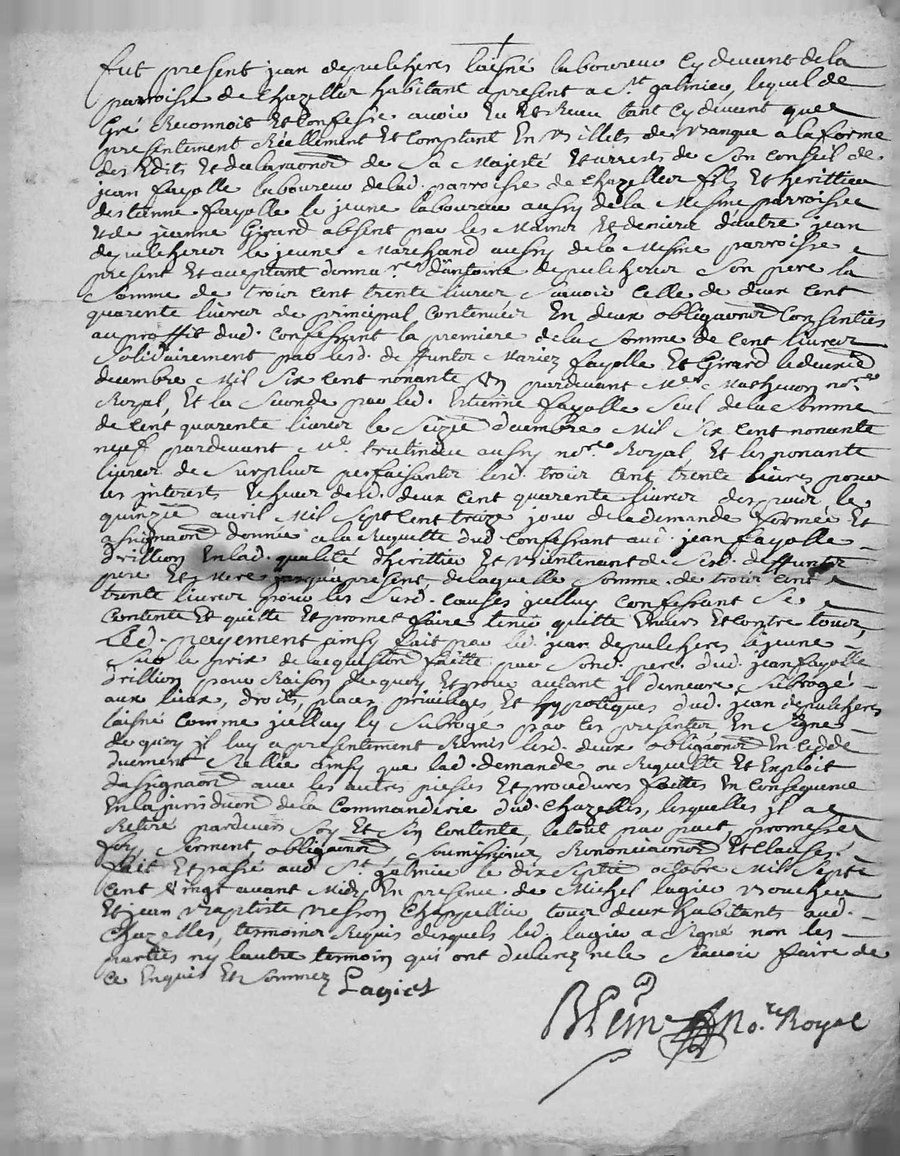 fut present jean depulcheres laisné laboureur cy devant de la
parroisse de Chazelles habitant a present a St. galmier, lequel de
Gré Reconnoit Et Confesse avoir Eu Et Receu tant cy devant que
presentement Réellement Et Comptant En Billets de Banque a la forme
des Edits Et declaraons de Sa Majesté Et arrests de Son Conseil de
jean fayolle laboureur de lad. parroisse de Chazelles fils Et herittier
destienne fayolle le jeune laboureur aussy de la Mesme parroisse
Et de jeanne Girard absent par les Mains Et deniers d'autre jean
depulcheres le jeune Marchand aussy de la Mesme parroisse
present Et aceptant d'antoine depulcheres Son pere la
Somme de trois cent trente livres Scavoir Celle de deux cent
quarente livres de principal contenües En deux obligaons Consenties
au proffit dud. confessant la premiere de la Somme de Cent livres
Solidairement par lesd. deffunts Mariez fayolle Et Girard le
decembre Mil Six cent nonante Un pardevant Me. Mathevon nore
Royal, Et la Seconde par led. Estienne fayolle Seul de la Somme
de Cent quarente livres le Seize decembre Mil Six Cent nonante
neuf pardevant Me. aussy nore Royal, Et les nonante
livres de Surplus perfaisantes lesd. trois Cent trente livres pour
les interests Echeus desd. deux cent quarente livres despuis le
quinze avril Mil Sept Cent treize jour de la demande formée Et
assignaon donnée a la Requette dud. Confessant aud. jean fayolle
drillion En lad. qualité d'herittier Et Bientenant de Sesd. deffunts
pere Et Mere jusqua present, de laquelle Somme de trois Cent
trente livres pour les Susd. Causes jcelluy Confessant Se
Contente Et quitte Et promet faire tenir quitte Envers Et Contre tous,
Led. payement ainsy fait par led. jean depulcheres le jeune
Sur le prix de lacquisition faitte par Sond. pere dud. jean fayolle
drillion pour Raison de quoy Et pour autant jl demeure Subrogé
aux lieux, droits, places privileges Et hypoteques dud. jean depulcheres
laisné Comme jcelluy ly Subroge par ces presentes, En Signe
de quoy jl luy a presentement Remis lesd. deux obligaons En
duement Scellée ainsy que lad. demande ou Requette Et Exploit
dassignaon avec les autres pieces Et procedures faittes En Consequence
En la jurisdicon de la Commanderie dud. Chazelles, lesquelles jl a
Retiré pardevers Soy Et S'en Contente, le tout par pact, promesses
foy, Serment obligaons Soumissions, Renonciaons Et Clauses,
fait Et passé aud. St. galmier le dix Septie octobre Mil Sept
Cent Vingt avant Midy En presence de Michel lagier Boucher
Et jean Baptiste Besson Chappellier tous deux habitants aud.
Chazelles, temoins Requis desquels led. lagier a Signé non les
parties ny lautre temoin qui ont declarez ne le Scavoir faire de
ce Enquis Et Sommez
Lagier
Blein No.re Royal